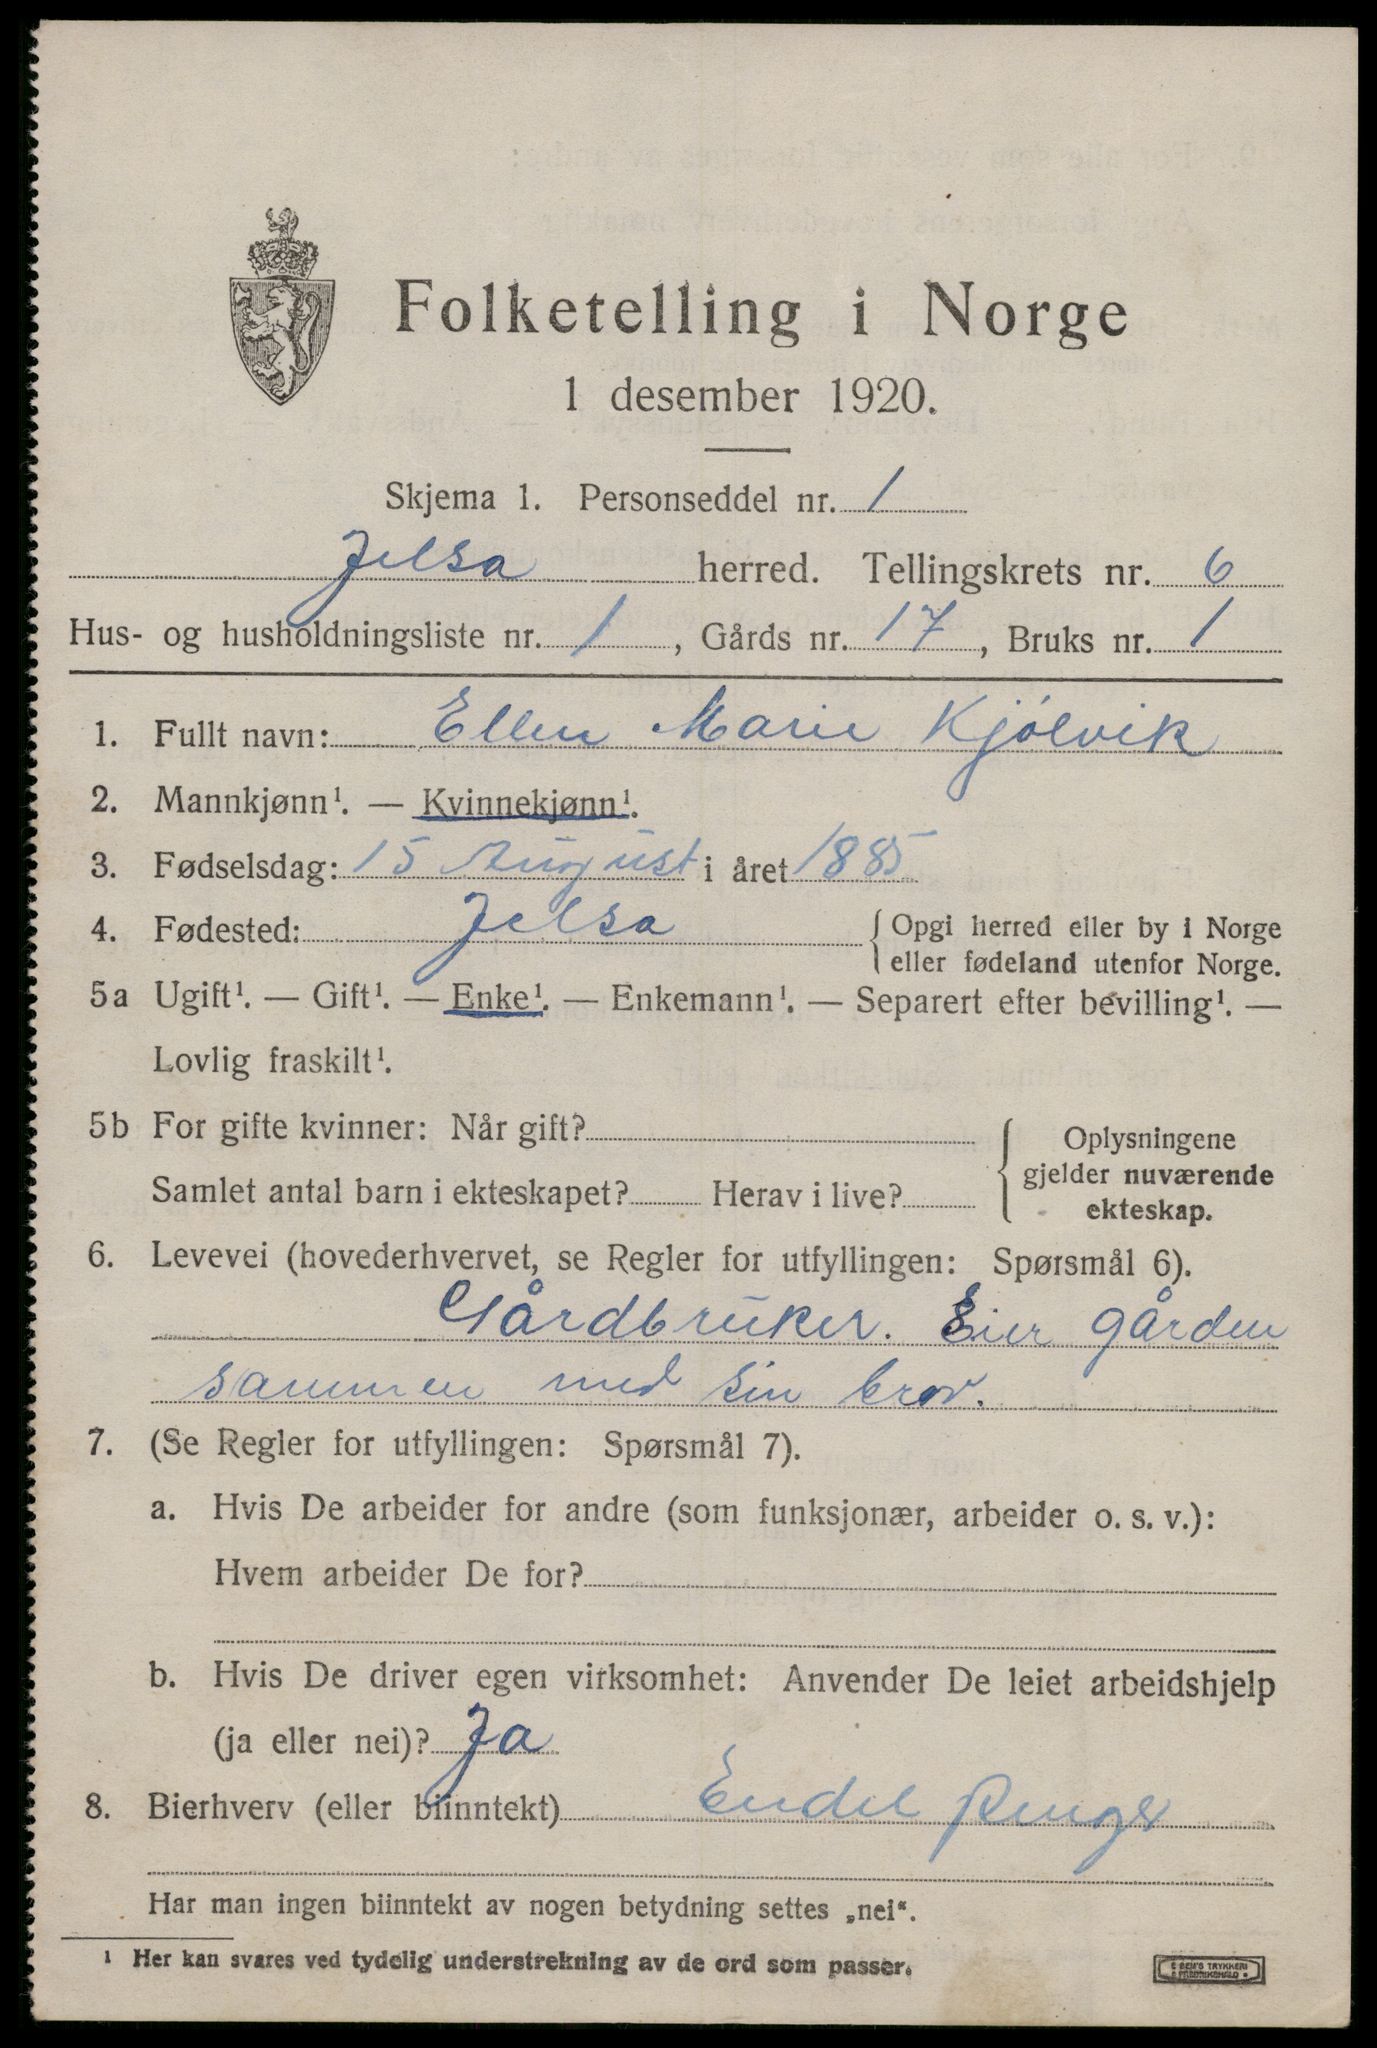 Folketelling i Norge
1 desember 1920.
Skjema 1. Personseddel nr. 1
Jelsa herred. Tellingskrets nr. 6
Hus- og husholdningsliste nr. 1, Gårds nr. 17, Bruks nr. 1
1. Fullt navn: Ellen Marie Kjölvik
2. Mannkjønn¹. — Kvinnekjønn¹.
3. Fødselsdag: 15 August i året 1885
4. Fødested: Jelsa { Opgi herred eller by i Norge
eller fødeland utenfor Norge.
5a Ugift¹. — Gift¹. — Enke¹. — Enkemann¹. — Separert efter bevilling¹. —
Lovlig fraskilt¹.
5b For gifte kvinner: Når gift?
Samlet antal barn i ekteskapet? Herav i live?
Oplysningene
gjelder nuværende
ekteskap.
6. Levevei (hovederhvervet, se Regler for utfyllingen: Spørsmål 6).
Gårdbruker. Eier gården
sammen med sin bror.
7. (Se Regler for utfyllingen: Spørsmål 7).
a. Hvis De arbeider for andre (som funksjonær, arbeider o. s. v.):
Hvem arbeider De for?
b. Hvis De driver egen virksomhet: Anvender De leiet arbeidshjelp
(ja eller nei)? Ja
8. Bierhverv (eller biinntekt) Endel
Har man ingen biinntekt av nogen betydning settes „nei“.
¹ Her kan svares ved tydelig understrekning av de ord som passer.